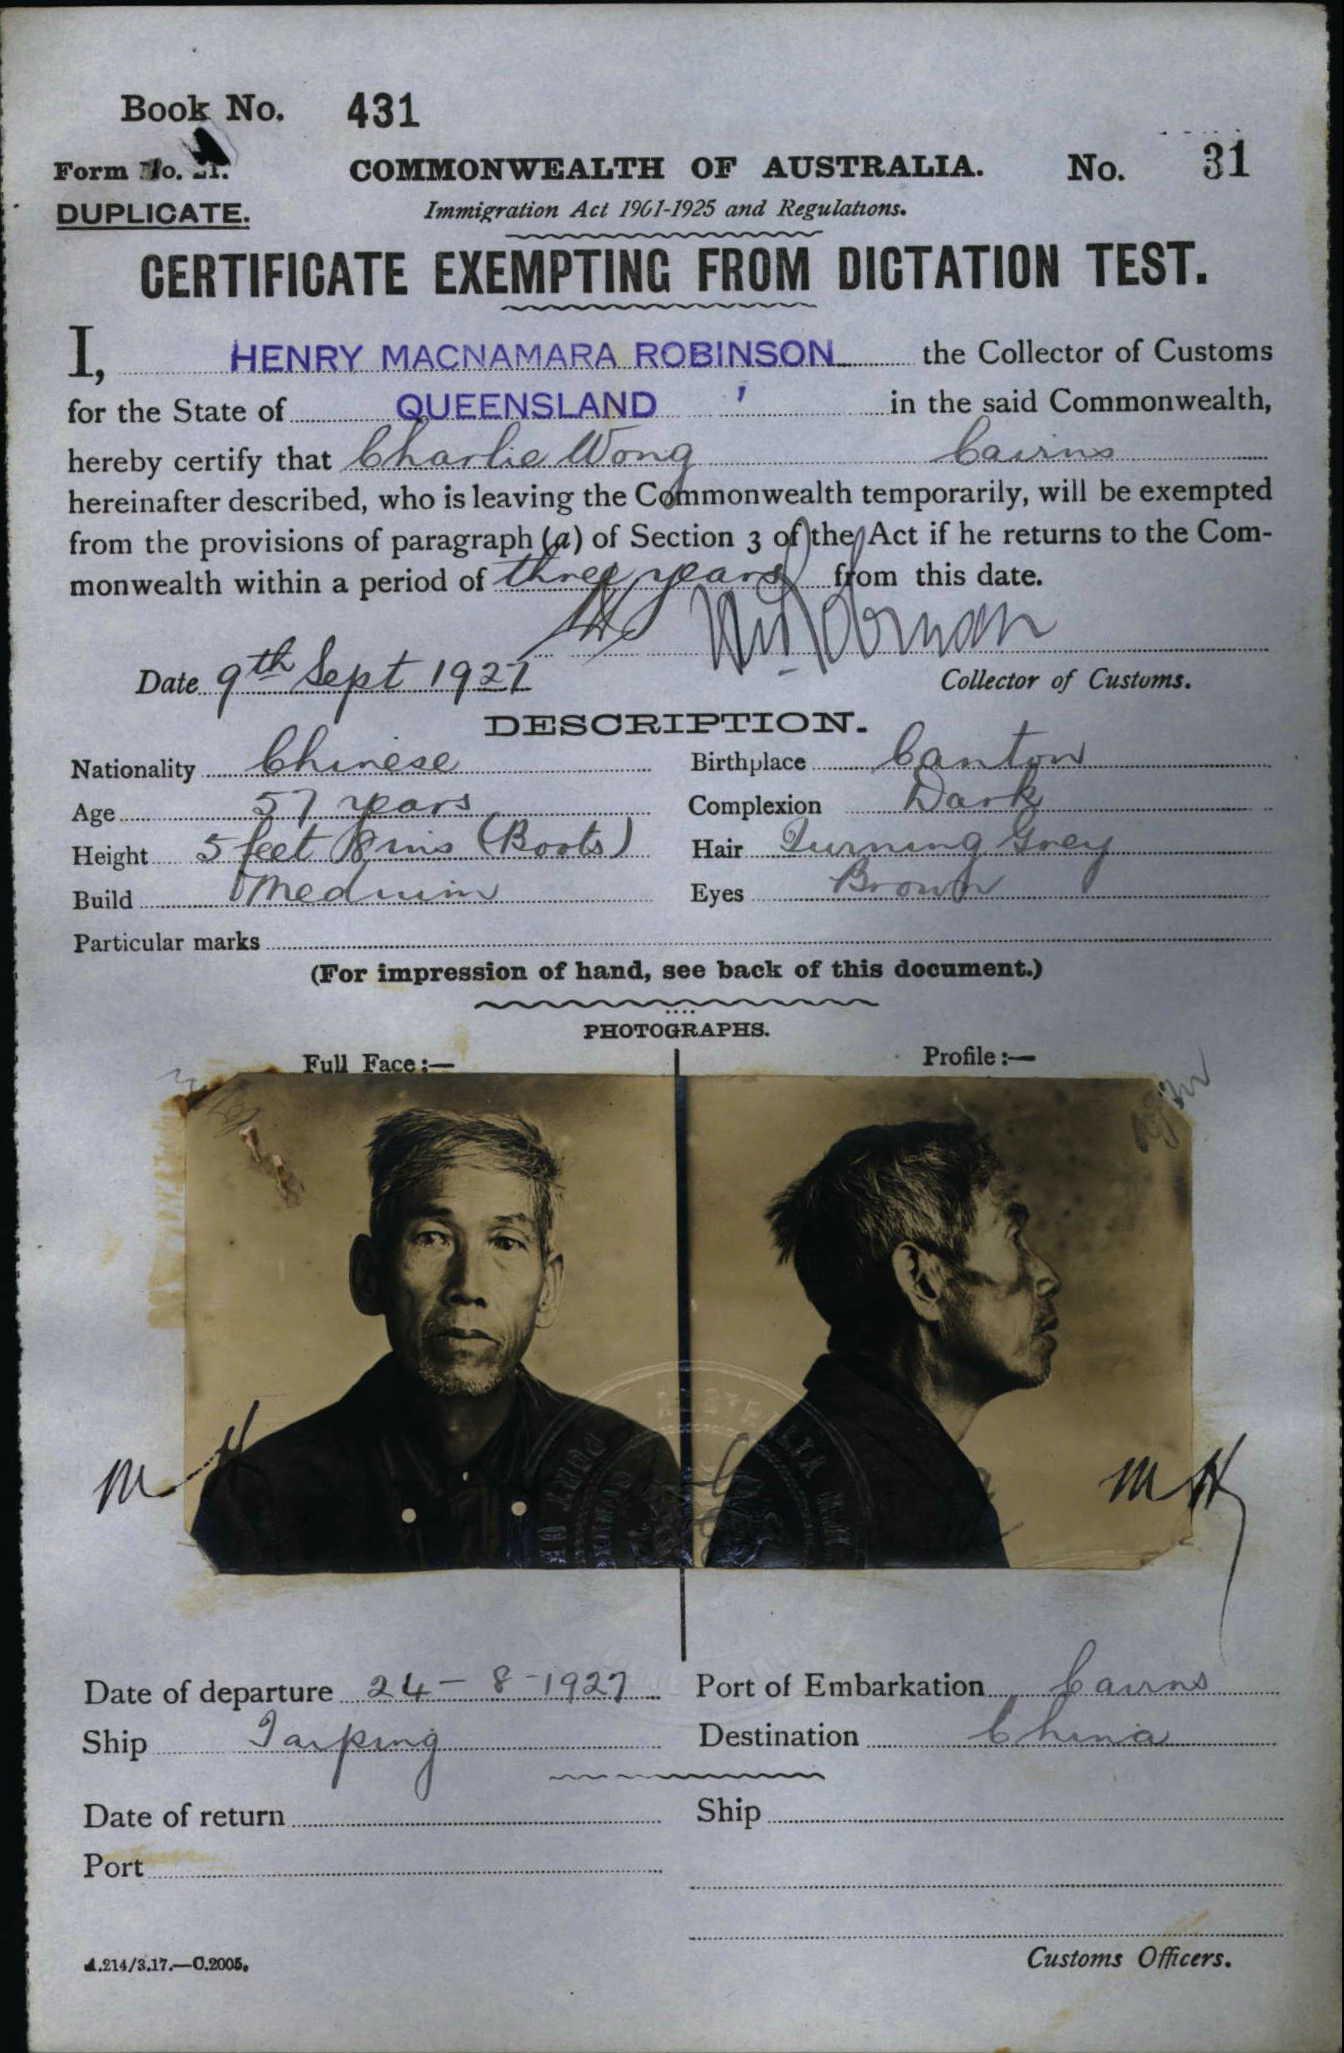 Book No. 431
Form No. 21.
COMMONWEALTH OF AUSTRALIA. No. 31
DUPLICATE.
Immigration Act 1901-1925 and Regulations.
CERTIFICATE EXEMPTING FROM DICTATION TEST.
I, HENRY MACNAMARA ROBINSON the Collector of Customs
for the State of QUEENSLAND in the said Commonwealth,
hereby certify that Charlie Wong Cairns
hereinafter described, who is leaving the Commonwealth temporarily, will be exempted
from the provisions of paragraph (a) of Section 3 of the Act if he returns to the Com-
monwealth within a period of three years from this date.
Date 9th Sept 1927
Collector of Customs.
DESCRIPTION.
Nationality Chinese Birthplace Canton
Age 57 years Complexion Dark
Height 5 feet 8 ins (Boots) Hair Turning Grey
Build Medium Eyes Brown
Particular marks
(For impression of hand, see back of this document.)
PHOTOGRAPHS.
Full Face:— Profile:—
MH MH
Date of departure 24-8-1927 Port of Embarkation Cairns
Ship Taiping Destination China
Date of return Ship
Port
A.214/3.17.—C.2005. Customs Officers.